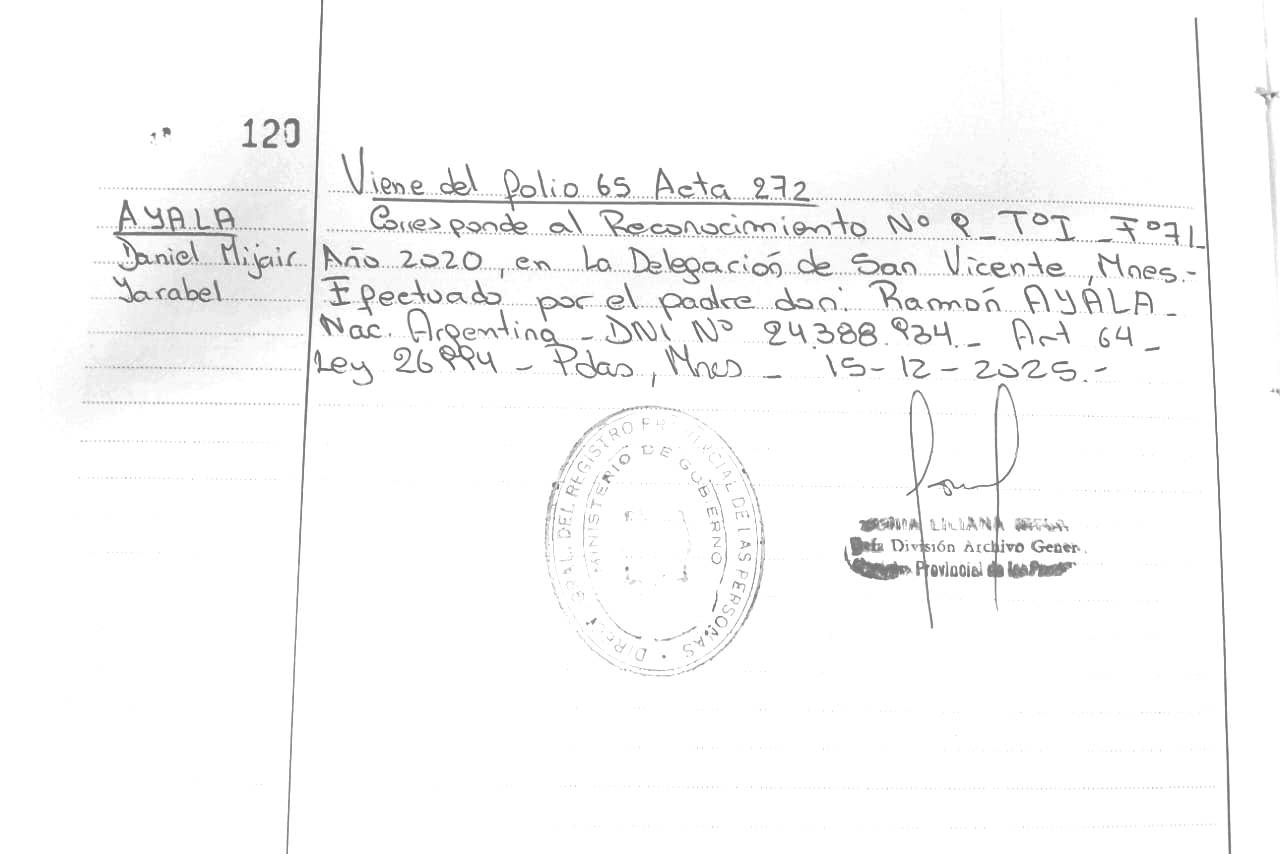 120
Viene del folio 65 Acta 272
AYALA
Daniel Mijair
Yarabel
Corresponde al Reconocimiento Nº 9_ TºI _ Fº71_
Año 2020, en La Delegación de San Vicente, Mnes.-
Efectuado por el padre don: Ramón AYALA_
Nac. Argentina_ DNI Nº 24.388.934._ Art 64_
Ley 26994_ Pdas, Mnes_ 15-12-2025.-
GRAL. DEL REGISTRO PROVINCIAL DE LAS PERSONAS
MINISTERIO DE GOBIERNO
LILIANA
Jefa División Archivo Gener
Provincial de las